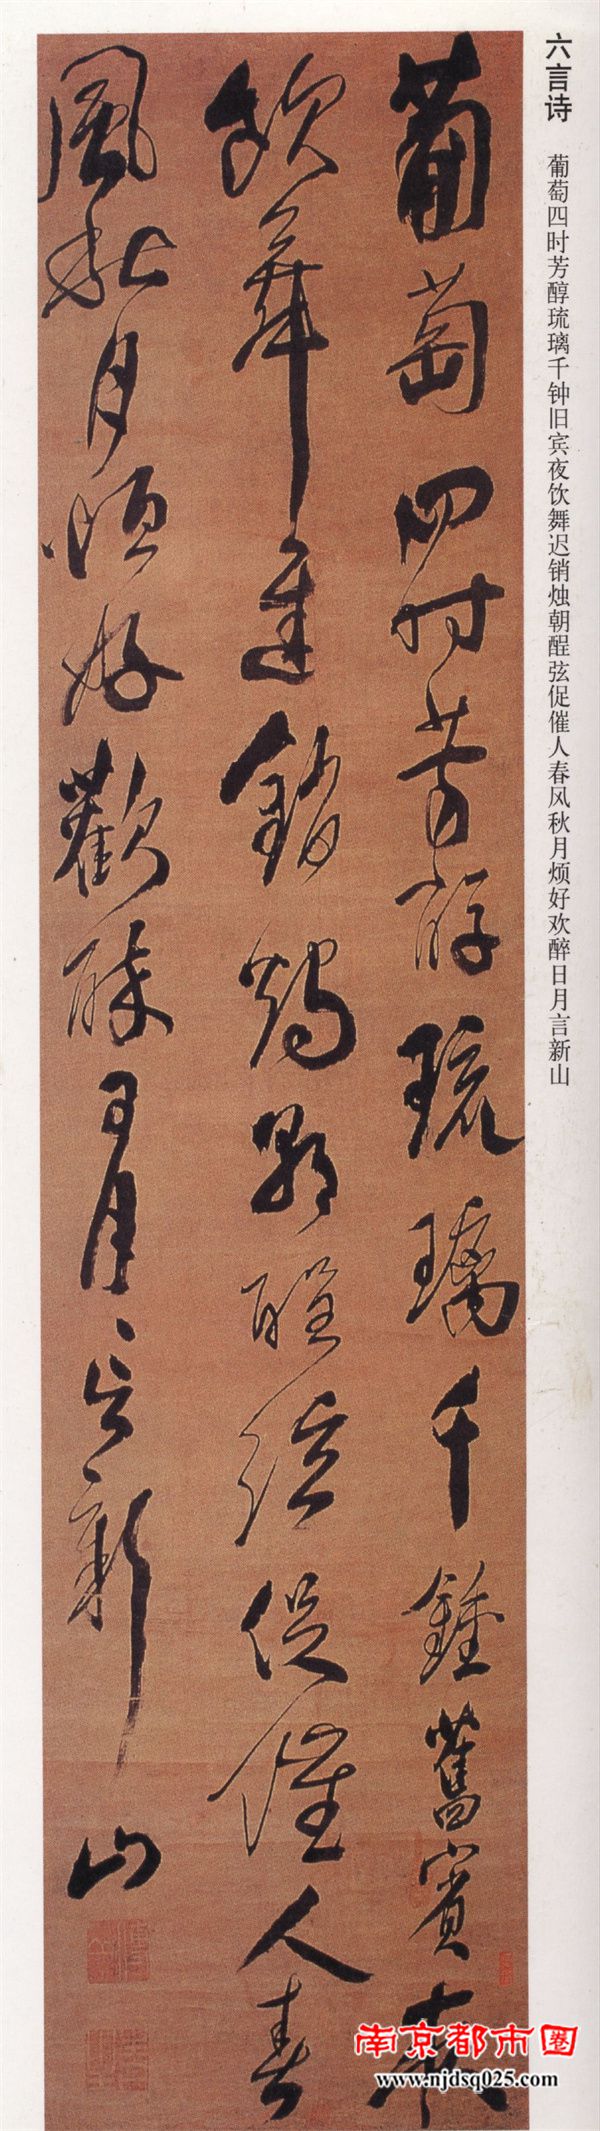 六言诗 葡萄四时芳醇琉璃千钟旧宾夜饮舞迟销烛朝醒弦促催人春风秋月烦好欢醉日月言新山
葡萄四时芳醇琉璃千鍾舊賓夜
飲舞遲銷燭朝醒絃促催人春
風秋月恒好歡醉日月言新山
南京都市圈
www.njdsq025.com